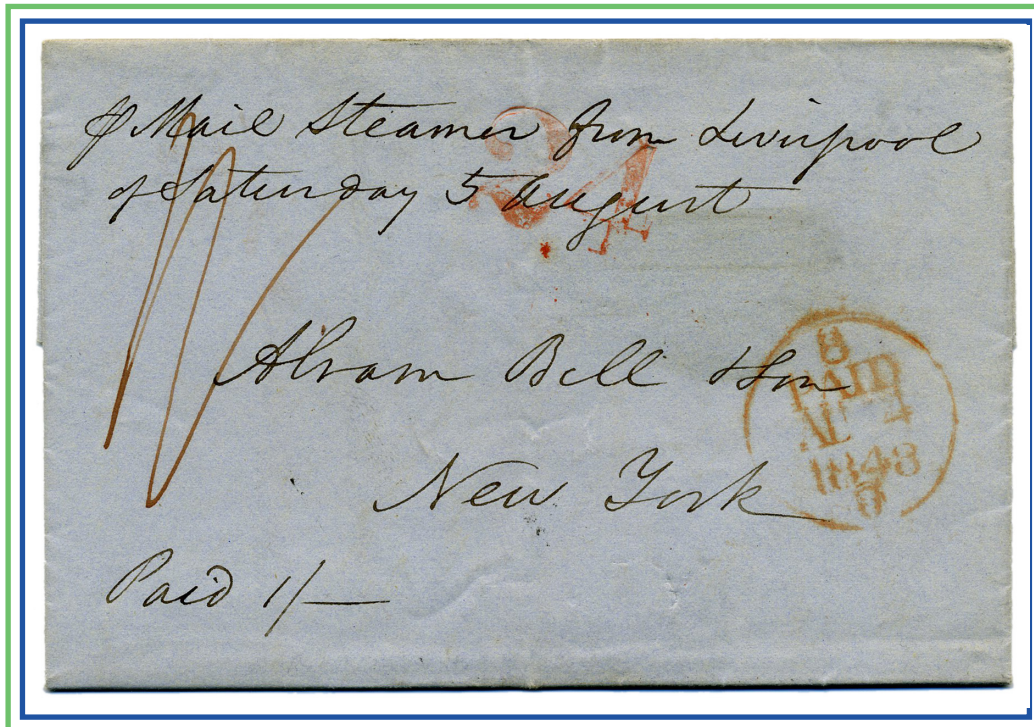 ℘ Mail Steamer from Liverpool
of Saturday 5 August
24
Abram Bell & Son
New York
Paid 1/—
8
PAID
AU 4
1848